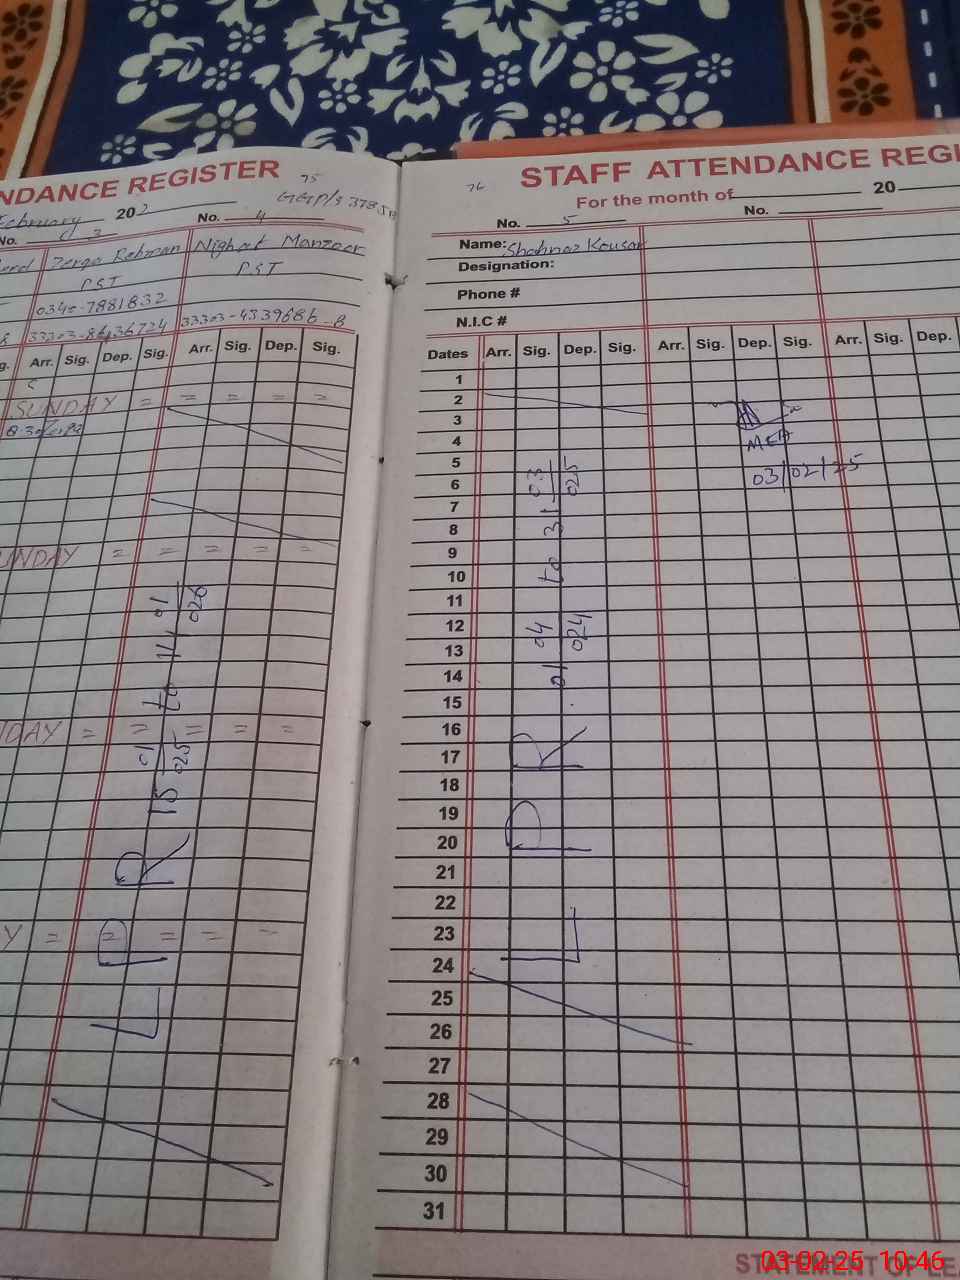 NDANCE REGISTER
75
GGP/S 378 JB
February 202
No. 4
No. 3
Zerqa Rehman
Nighat Manzoor
PST
PST
0345-7881832
33303-4339686-8
Arr. Sig. Dep. Sig. Arr. Sig. Dep. Sig.
SUNDAY = = = = =
8.30
UNDAY = = = = =
DAY = = = = =
Y = = = = =
L P R 15 01/025 to 14 01/026
76
STAFF ATTENDANCE REGI
For the month of 20
No. 5
No.
Name: Shahnaz Kousar
Designation:
Phone #
N.I.C #
Dates Arr. Sig. Dep. Sig. Arr. Sig. Dep. Sig. Arr. Sig. Dep.
1
2
3
4
5
6
7
8
9
10
11
12
13
14
15
16
17
18
19
20
21
22
23
24
25
26
27
28
29
30
31
L P R . 01 04/024 to 31 03/025
MEA
03/02/25
STATEMENT OF LEA
03-02-25 10:46